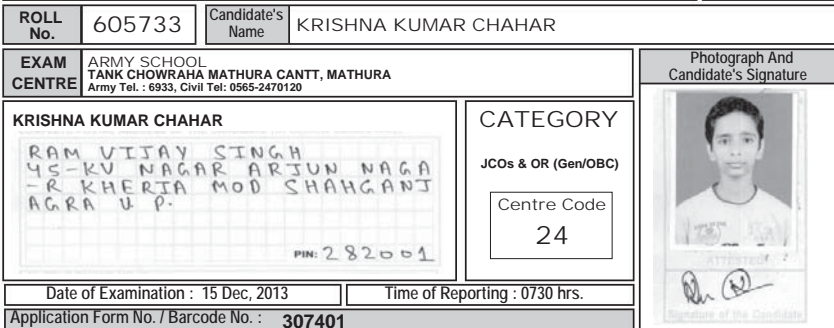 ROLL No. 605733 Candidate's Name KRISHNA KUMAR CHAHAR
EXAM CENTRE
ARMY SCHOOL
TANK CHOWRAHA MATHURA CANTT, MATHURA
Army Tel. : 6933, Civil Tel: 0565-2470120
Photograph And
Candidate's Signature
KRISHNA KUMAR CHAHAR
RAM VIJAY SINGH
45-KV NAGAR ARJUN NAGA
-R KHERIA MOD SHAHGANJ
AGRA U P.
PIN: 282001
CATEGORY
JCOs & OR (Gen/OBC)
Centre Code
24
ATTESTED
Signature of the Candidate
Date of Examination : 15 Dec, 2013
Time of Reporting : 0730 hrs.
Application Form No. / Barcode No. : 307401